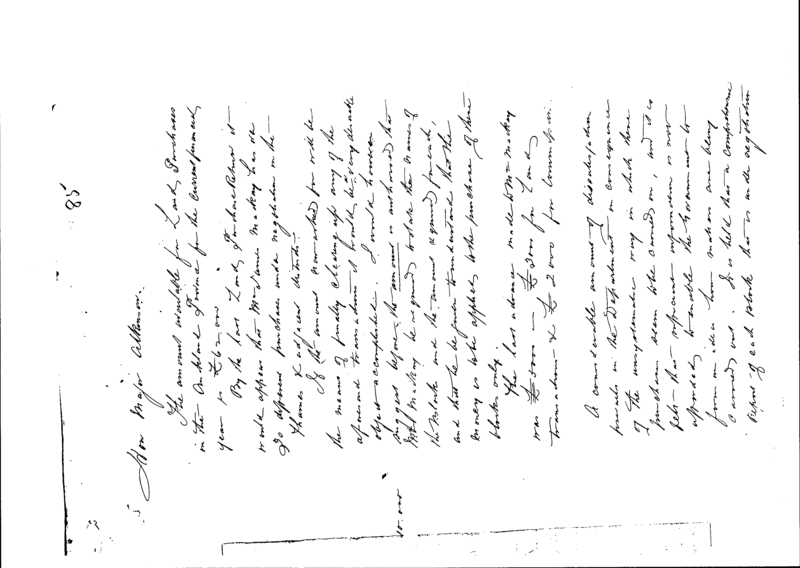 85
Hon Major Atkinson.
The amount available for Land Purchases
in the Auckland Province for the current financial
year is £60.000
By the last Land Purchase Return it
would appear that Mr James Mackay has
different purchases under negotiation in the
Thames & adjacent districts
If the amount now asked for will be
the means of finally clearing up any of the
aforesaid transactions it would be a very desirable
object accomplished. I would however
suggest before the amount is authorised that
Mr Mackay be required to state the names of
the blocks and the amount required for each,
and that he be given to understand that the
money is to be applied to the purchase of these
blocks only.
The last advance made to Mr Mackay
was £5000 — £3000 for Land
transactions & £2000 for Commission.
A considerable amount of dissatisfaction
prevails in the Department in consequence
of the unsystematic way in which these
purchases seem to be carried on, and it is
felt that sufficient information is not
afforded to enable the Government to
form an idea how matters are being
carried out. It is held that a comprehensive
report of each block that is under negotiation